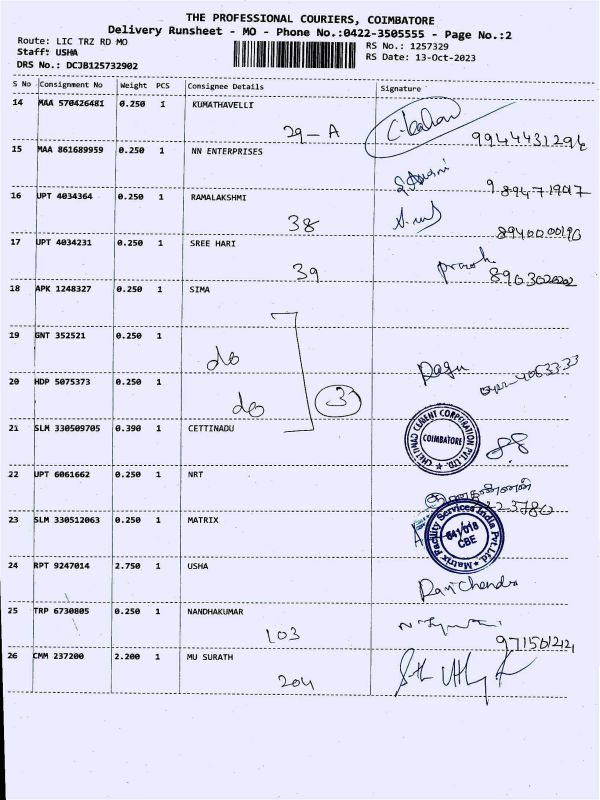 THE PROFESSIONAL COURIERS, COIMBATORE
Delivery Runsheet - MO - Phone No.:0422-3505555 - Page No.:2
Route: LIC TRZ RD MO
RS No.: 1257329
Staff: USHA
RS Date: 13-Oct-2023
DRS No.: DCJB125732902
S No Consignment No Weight PCS Consignee Details Signature
14 MAA 570426481 0.250 1 KUMATHAVELLI
29-A
15 MAA 861689959 0.250 1 NN ENTERPRISES
16 UPT 4034364 0.250 1 RAMALAKSHMI
38
17 UPT 4034231 0.250 1 SREE HARI
39
18 APK 1248327 0.250 1 SIMA
19 GNT 352521 0.250 1
do
20 HDP 5075373 0.250 1
do
21 SLM 330509705 0.390 1 CETTINADU
CHETTINAD CEMENT CORPORATION PVT. LTD.
COIMBATORE
22 UPT 6061662 0.250 1 NRT
23 SLM 330512063 0.250 1 MATRIX
Matrix Facility Services India Pvt. Ltd.
641 018
CBE
24 RPT 9247014 2.750 1 USHA
25 TRP 6730805 0.250 1 NANDHAKUMAR
103
26 CMM 237200 2.200 1 MU SURATH
204